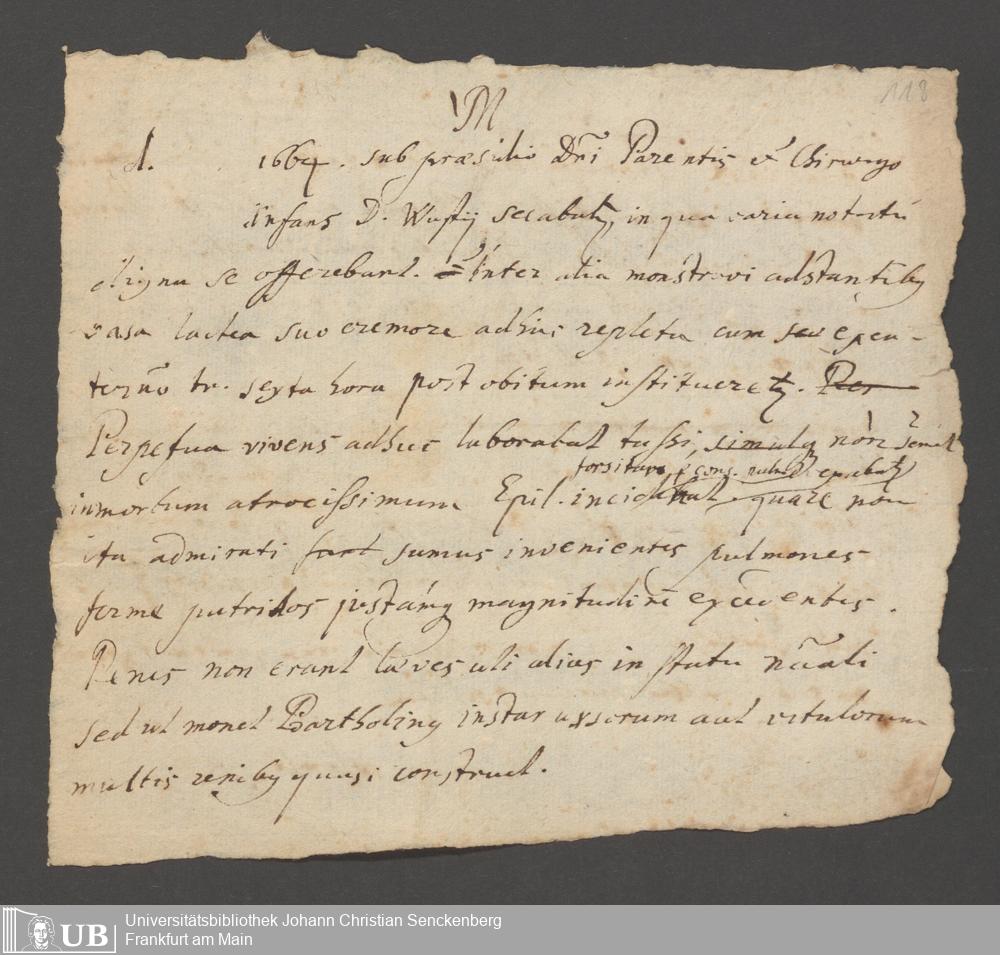 118
M
d. 1664. sub præsidio Dn̄i Parentis et Chirurgo
infans D. Wustij secabatr, in qua varia notatū
digna se offerebant. Inter alia monstravi adstantiby
vasa lactea suo cremore adhuc repleta cum
hr. sexta hora post obitum institueretr. Per
Perpetua vivens adhuc laborabat tussi, simulq non semel
torsiture
in morbum atrocissimum Epil. incidebat quare non
ita admirati sunt sumus invenientes pulmones
ferme putridos justamq magnitudinē excedentes.
Renes non erant læves uti alias in statu nāali
sed ut monet Bartholing instar ursorum aut vitulorum
multis reniby quasi construct.
Universitätsbibliothek Johann Christian Senckenberg
Frankfurt am Main
UB